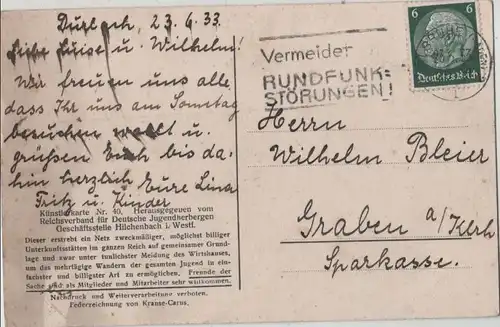 Durlach, 23.6.33
Liebe Luise u. Wilhelm!
Wir freuen uns alle
dass Ihr uns am Sonntag
besuchen wollt u.
grüßen Euch bis da-
hin herzlich Eure Lina
Fritz u. Kinder
Künstlerkarte Nr. 40, Herausgegeuen vom
Reichsverband für Deutsche Jugendherbergen
Geschäftsstelle Hilchenbach i. Westf.
Dieser erstrebt ein Netz zweckmäßiger, möglichst billiger
Unterkunftsstätten im ganzen Reich auf gemeinsamer Grund-
lage und zwar unter tunlichster Meidung des Wirtshauses,
um das mehrtägige Wandern der gesamten Jugend in ein-
fachster und billigster Art zu ermöglichen. Freunde der
Sache sind als Mitglieder und Mitarbeiter sehr willkommen.
Nachdruck und Weiterverarbeitung verboten.
Federzeichnung von Krause-Carus.
Vermeidet
RUNDFUNK-
STÖRUNGEN!
6 6
Deutsches Reich
Herrn
Wilhelm Bleier
Graben a/
Sparkasse.